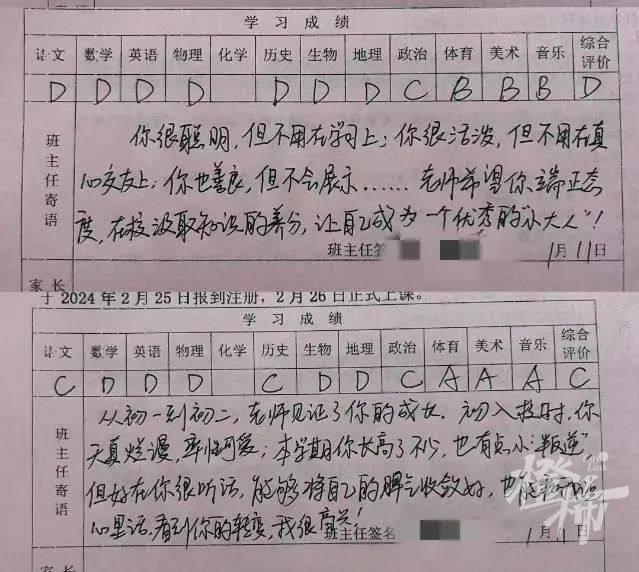 学习成绩
语文 数学 英语 物理 化学 历史 生物 地理 政治 体育 美术 音乐 综合评价
D D D D D D D C B B B D
班主任寄语
你很聪明，但不用在学习上；你很活泼，但不用在真
心交友上；你也善良，但不会展示……老师希望你端正态
度，在校汲取知识的养分，让自己成为一个优秀的“小大人”！
班主任签 1月11日
家长
于 2024 年 2 月 25 日报到注册，2 月 26 日正式上课。
学习成绩
语文 数学 英语 物理 化学 历史 生物 地理 政治 体育 美术 音乐 综合评价
C D D D C D D C A A A C
班主任寄语
从初一到初二，老师见证了你的成长。初入校时，你
天真烂漫，率性可爱；本学期你长高了不少，也有点小“叛逆”，
但好在你很听话，能够将自己的脾气收敛好，也能
心里话，看到你的转变，我很高兴！
班主任签名 1月11日
家长
橙柿